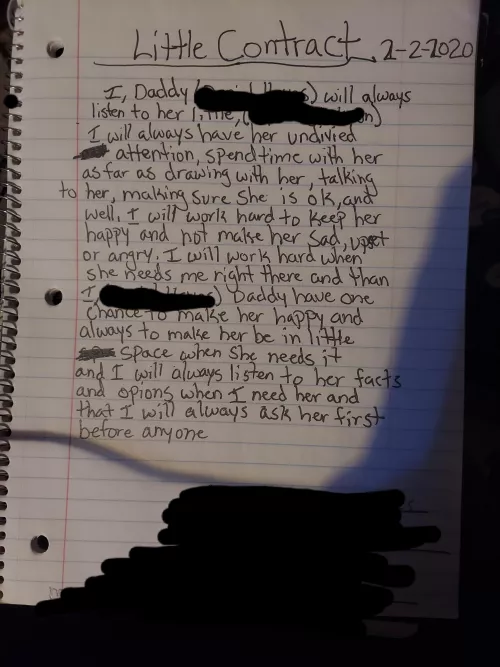 Little Contract 2-2-2020
I, Daddy ( ) will always
listen to her little, ( )
I will always have her undivied
attention, spend time with her
as far as drawing with her, talking
to her, making sure she is ok, and
well. I will work hard to keep her
happy and not make her sad, upset
or angry. I will work hard when
she needs me right there and than
I ( ) Daddy have one
chance to make her happy and
always to make her be in little
space when she needs it
and I will always listen to her facts
and opions when I need her and
that I will always ask her first
before anyone